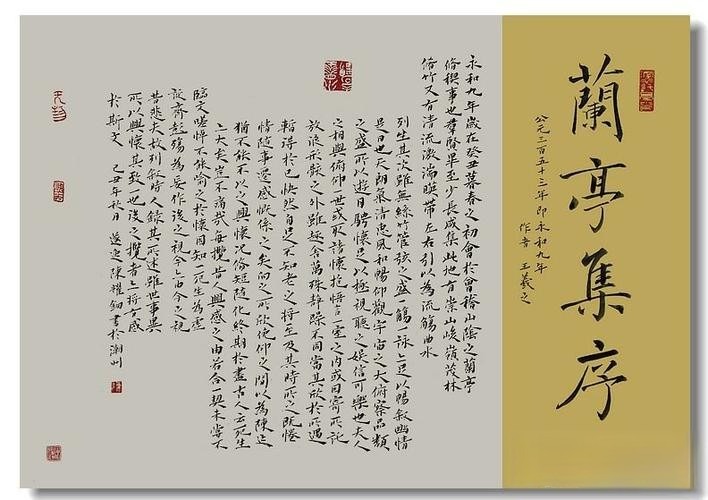 蘭亭集序
公元三百五十三年即永和九年
作者 王羲之
永和九年歲在癸丑暮春之初會於會稽山陰之蘭亭
脩禊事也羣賢畢至少長咸集此地有崇山峻嶺茂林
脩竹又有清流激湍暎帶左右引以為流觴曲水
列坐其次雖無絲竹管弦之盛一觴一詠亦足以暢敘幽情
是日也天朗氣清惠風和暢仰觀宇宙之大俯察品類
之盛所以遊目騁懷足以極視聽之娛信可樂也夫人
之相與俯仰一世或取諸懷抱悟言一室之內或因寄所託
放浪形骸之外雖趣舍萬殊靜躁不同當其欣於所遇
暫得於己快然自足不知老之將至及其時所之既惓
情隨事遷感慨係之矣向之所欣俛仰之間以為陳迹
猶不能不以之興懷況脩短隨化終期於盡古人云死生
亦大矣豈不痛哉每攬昔人興感之由若合一契未嘗不
臨文嗟悼不能喻之於懷固知一死生為虛
誕齊彭殤為妄作後之視今亦由今之視
昔悲夫故列敘時人錄其所述雖世事異
所以興懷其致一也後之攬者亦將有感
於斯文 己丑年秋月 陳耀鈿書於潮州